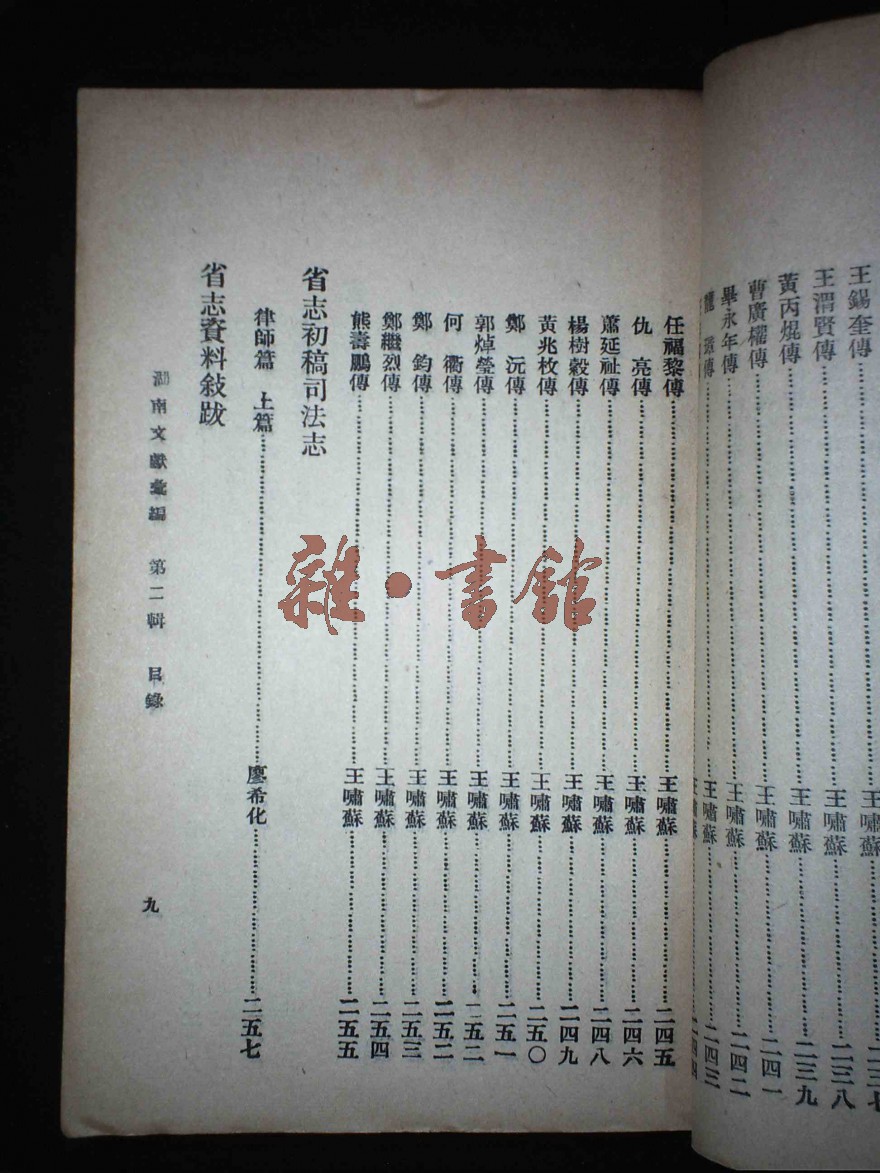 王錫奎傳……王嘯蘇……二三七
王渭賢傳……王嘯蘇……二三八
黃丙焜傳……王嘯蘇……二三九
曹廣櫂傳……王嘯蘇……二四一
畢永年傳……王嘯蘇……二四二
傳……王嘯蘇……二四三
二四四
任福黎傳……王嘯蘇……二四五
仇 亮傳……王嘯蘇……二四六
蕭延祉傳……王嘯蘇……二四八
楊樹穀傳……王嘯蘇……二四九
黃兆枚傳……王嘯蘇……二五〇
鄭 沅傳……王嘯蘇……二五一
郭焯瑩傳……王嘯蘇……二五二
何 衢傳……王嘯蘇……二五二
鄭 鈞傳……王嘯蘇……二五三
鄭繼烈傳……王嘯蘇……二五四
熊壽鵬傳……王嘯蘇……二五五
省志初稿司法志
律師篇 上篇……廖希化……二五七
省志資料敍跋
湖南文獻彙編 第二輯 目錄
九
雜·書館